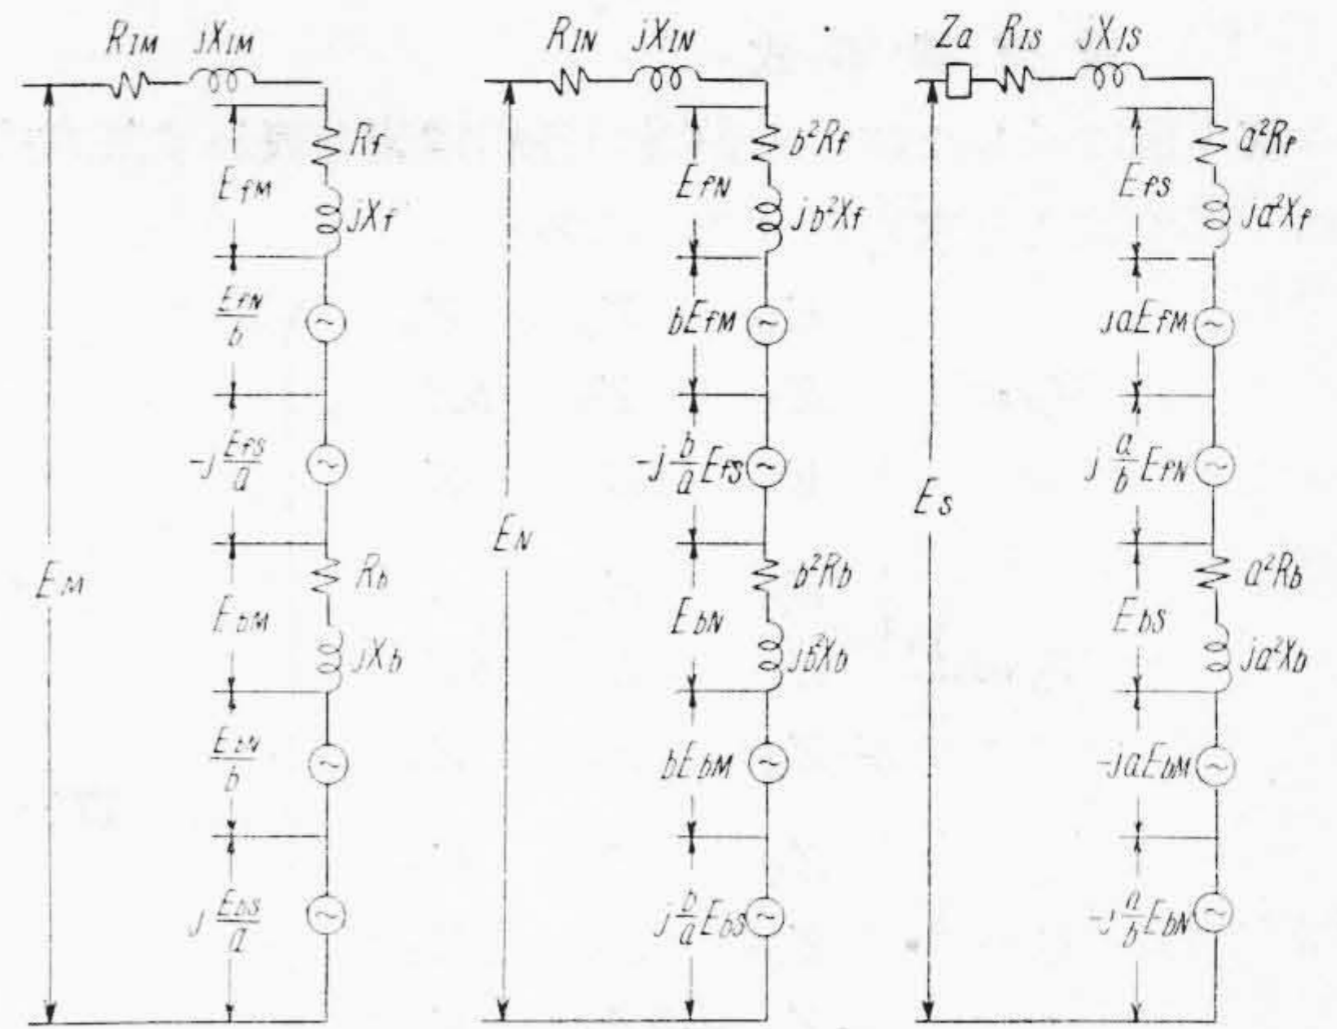 R1M jX1M
Rf
EfM
jXf
EfN/b
-j EfS/a
EM
Rb
EbM
jXb
EbN/b
j EbS/a
R1N jX1N
b²Rf
EfN
jb²Xf
bEfM
-j b/a EfS
EN
b²Rb
EbN
jb²Xb
bEbM
j b/a EbS
Za R1S jX1S
a²Rf
EfS
ja²Xf
jaEfM
j a/b EfN
ES
a²Rb
EbS
ja²Xb
-jaEbM
-j a/b EbN